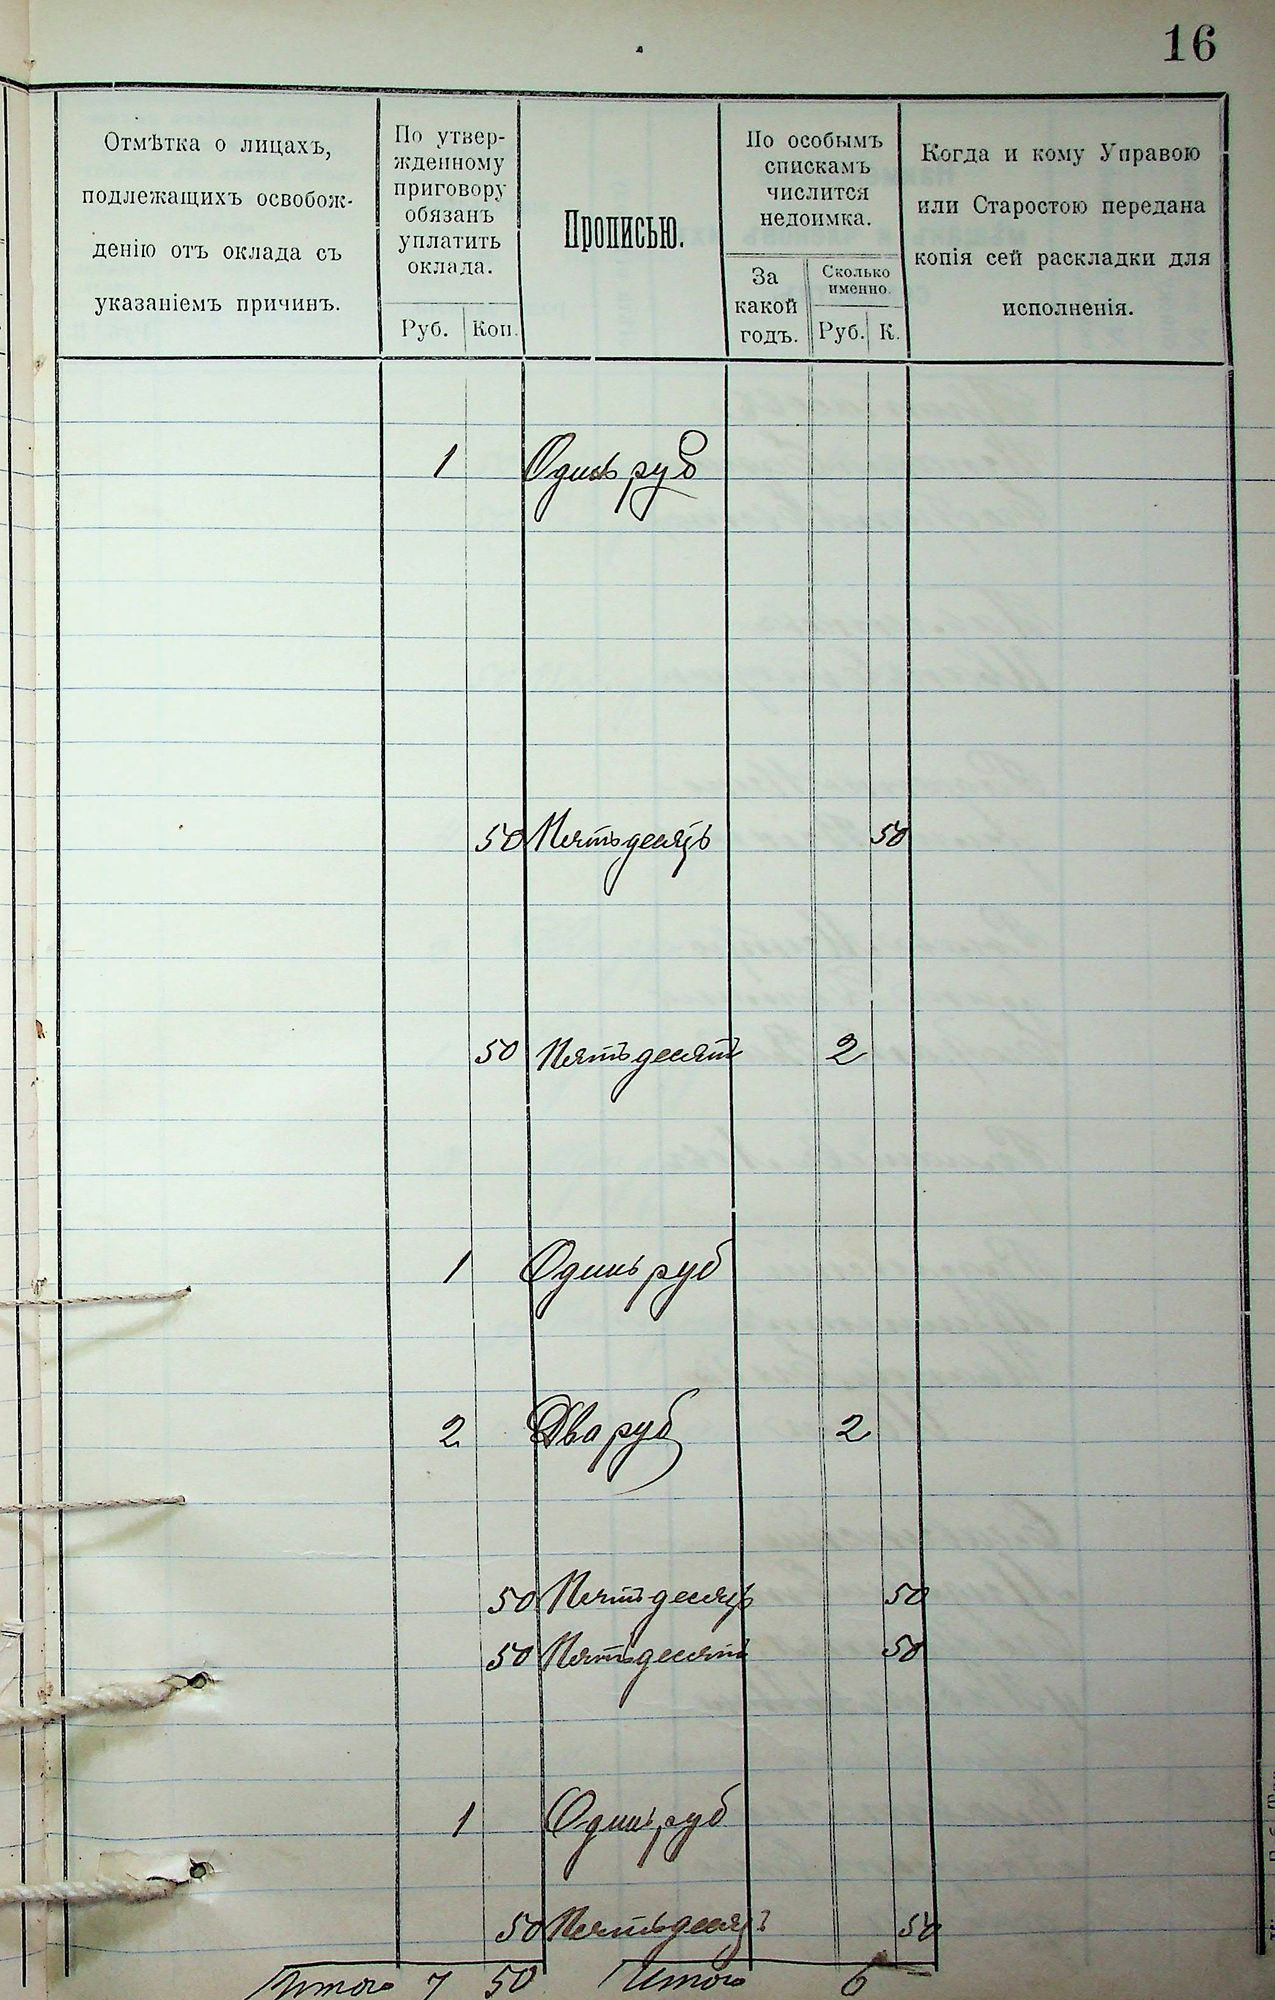 16
Отмѣтка о лицахъ,
подлежащихъ освобож-
денію отъ оклада съ
указаніемъ причинъ.
По утвер-
жденному
приговору
обязанъ
уплатить
оклада.
Руб. Коп.
Прописью.
По особымъ
спискамъ
числится
недоимка.
За
какой
годъ.
Сколько
именно.
Руб. К.
Когда и кому Управою
или Старостою передана
копія сей раскладки для
исполненія.
1 Одинъ руб
50 Пятьдесятъ 50
50 Пятьдесятъ 2
1 Одинъ руб
2 Два руб 2
50 Пятьдесятъ 50
50 Пятьдесятъ 50
1 Одинъ руб
50 Пятьдесятъ 50
Итого 7 50 Итого 6 —